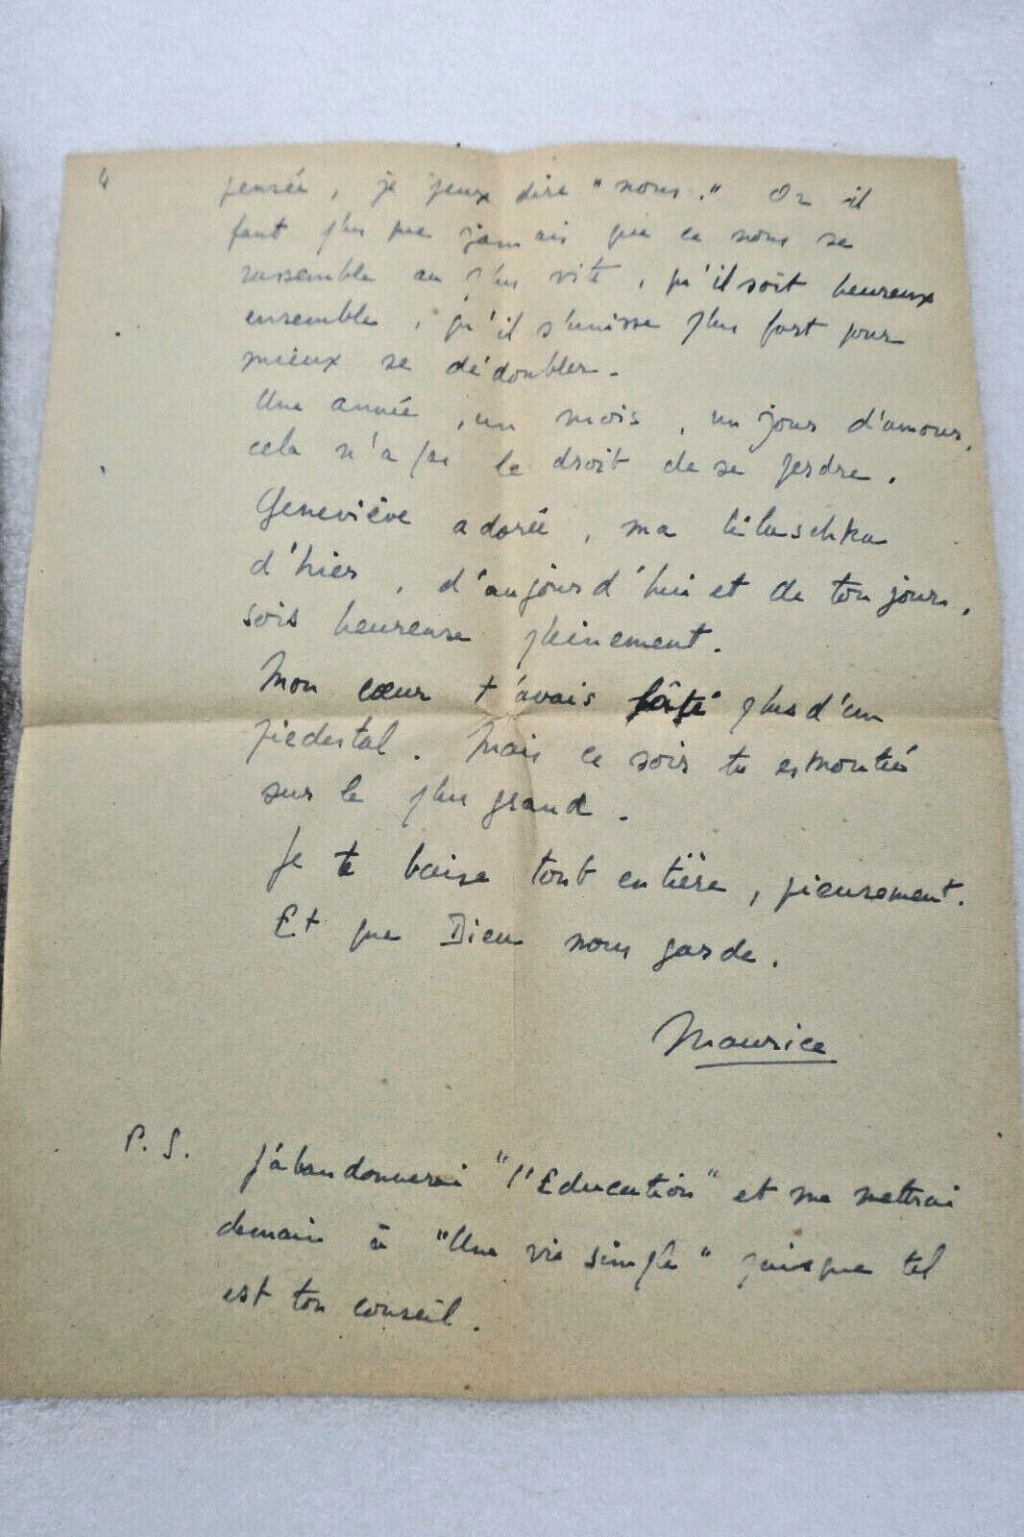 4
pensée, je peux dire "nous." Or il
faut plus que jamais que ce nous se
rassemble au plus vite, qu'il soit heureux
ensemble, qu'il s'unisse plus fort pour
mieux se dédoubler.
Une année, un mois, un jour d'amour,
cela n'a pas le droit de se perdre.
Geneviève adorée, ma
d'hier, d'aujourd'hui et de toujours,
sois heureuse pleinement.
Mon cœur t'avais plus d'un
piedestal. Mais ce soir tu es montée
sur le plus grand.
Je te baise tout entière, pieusement.
Et que Dieu nous garde.
Maurice
P.S. J'abandonnerai "l'Education" et me mettrai
demain à "Une vie simple" puisque tel
est ton conseil.